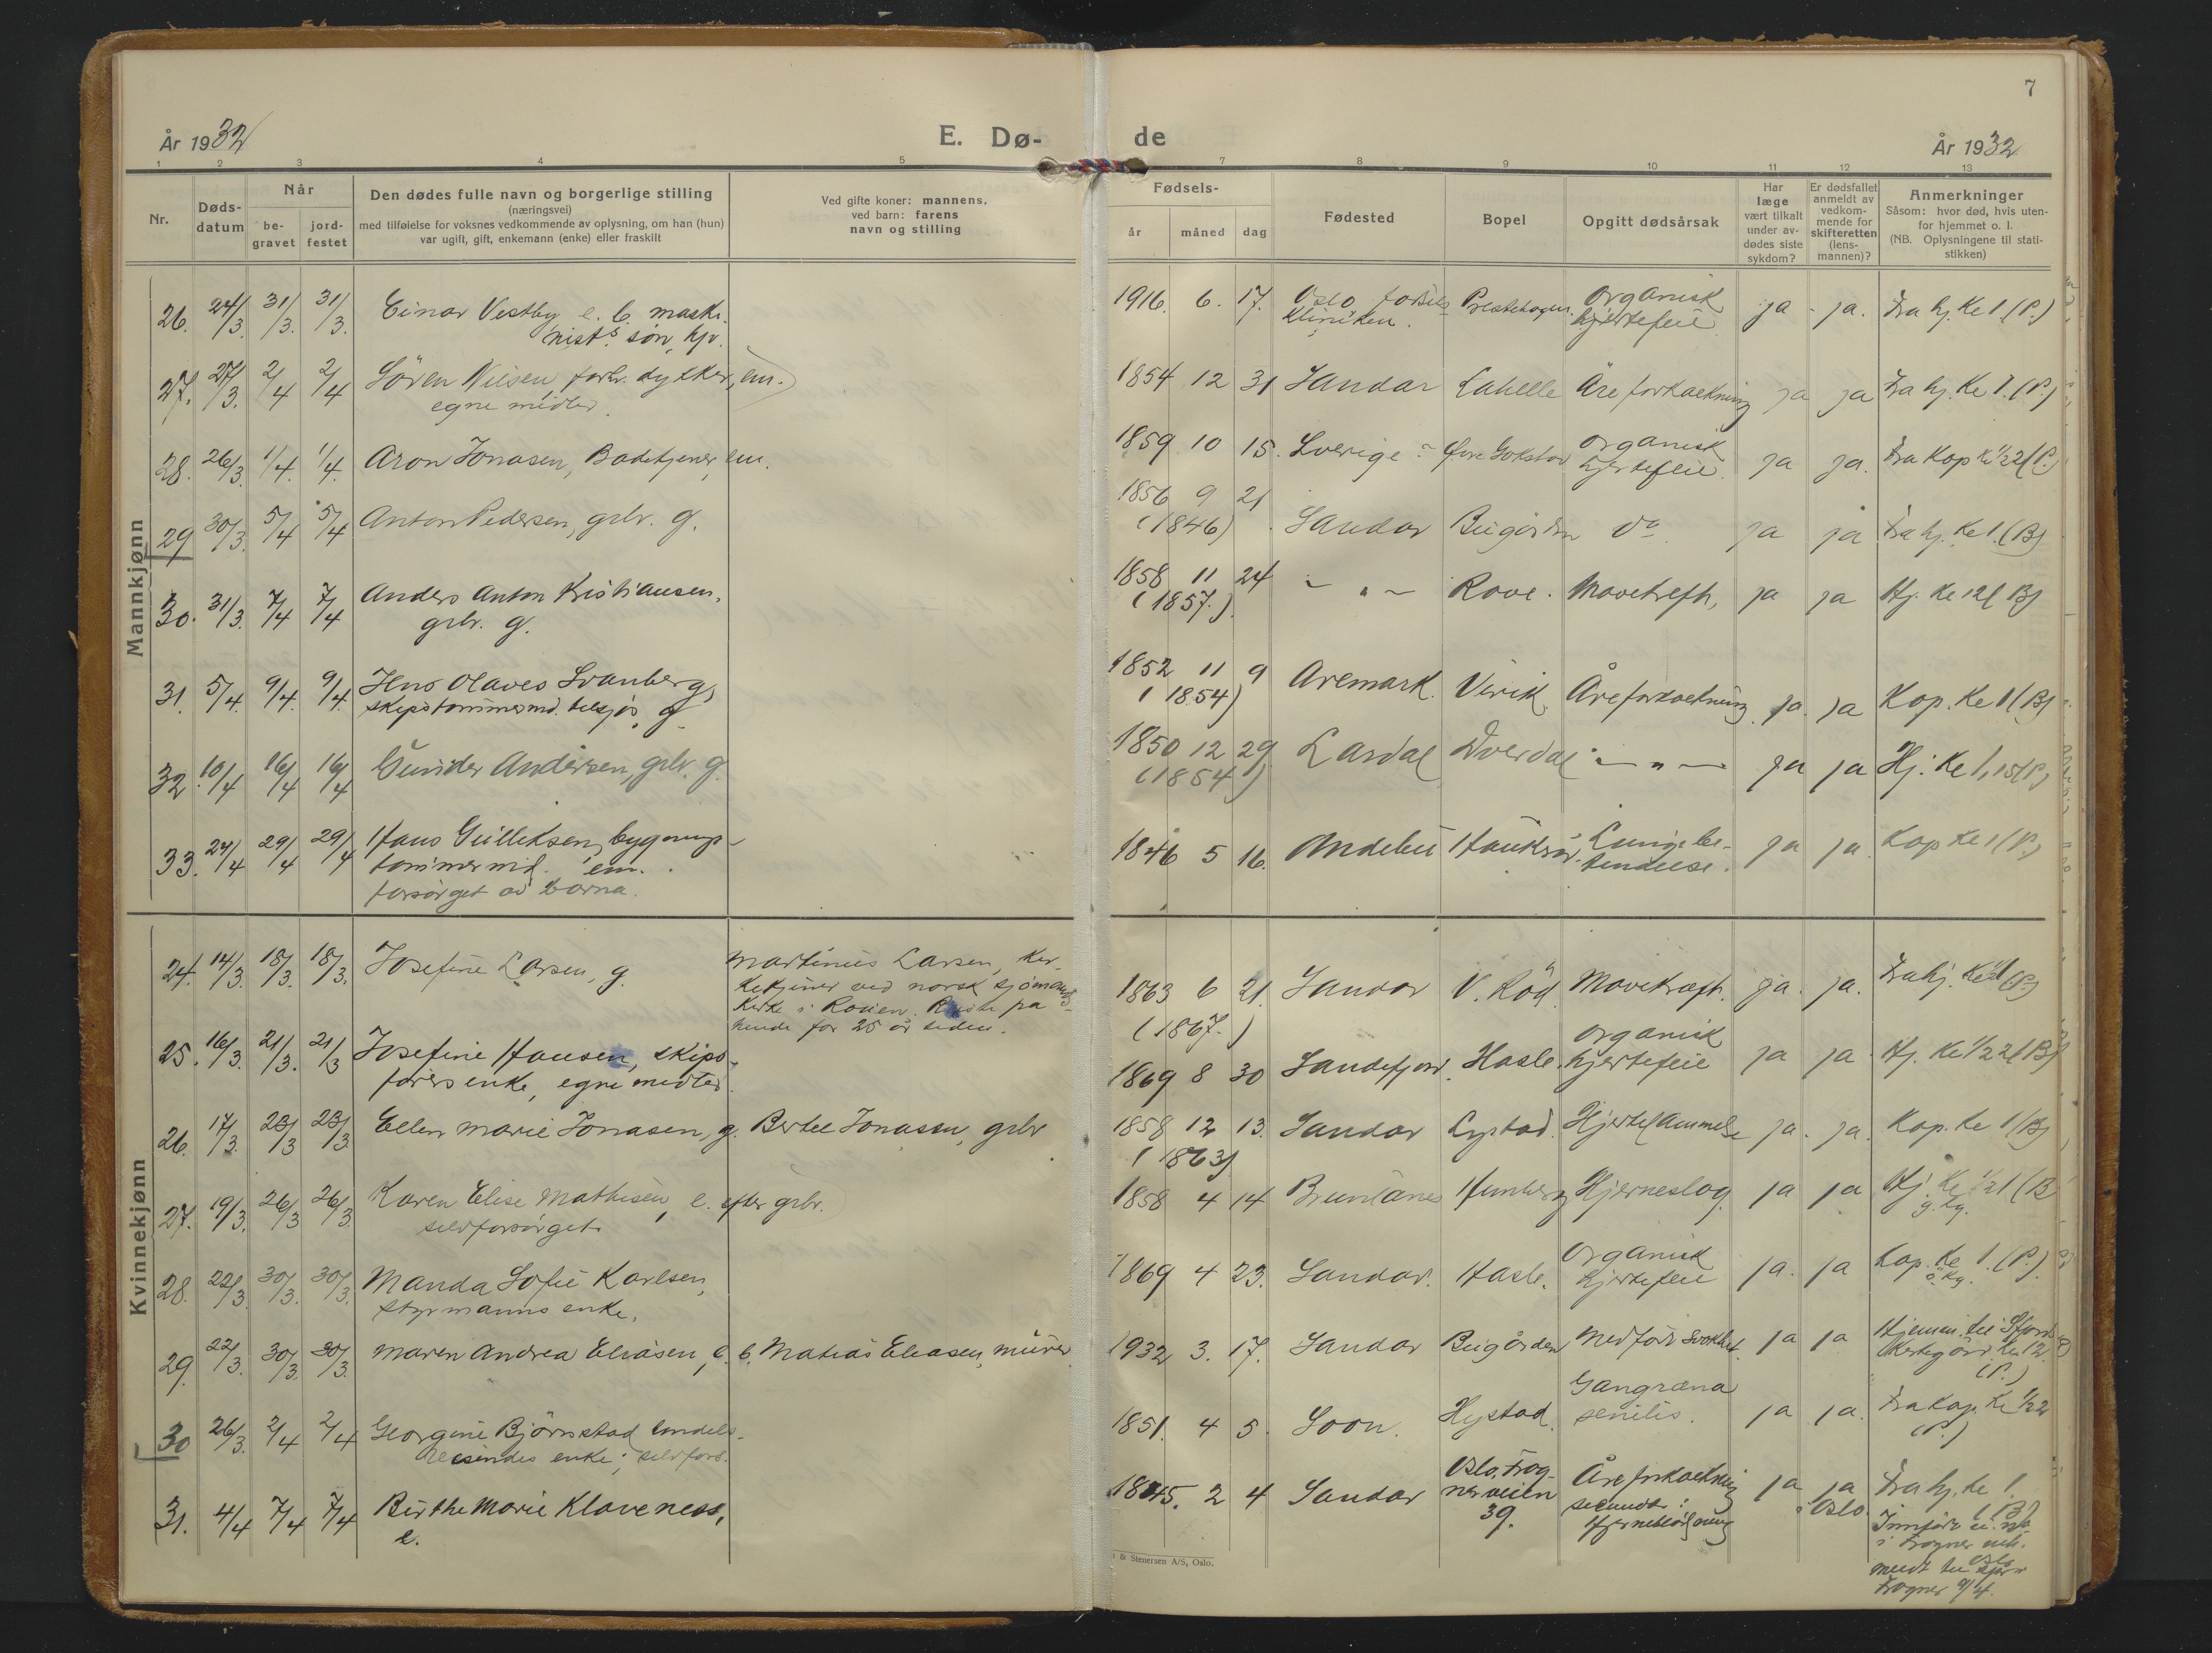 7
År 1932
E. Dø-
de
År 1932
1 2 3 4 5 7 8 9 10 11 12 13
Nr.
Døds-
datum
Når
be-
gravet
jord-
festet
Den dødes fulle navn og borgerlige stilling
(næringsvei)
med tilføielse for voksnes vedkommende av oplysning, om han (hun)
var ugift, gift, enkemann (enke) eller fraskilt
Ved gifte koner: mannens,
ved barn: farens
navn og stilling
Fødsels-
år måned dag
Fødested
Bopel
Opgitt dødsårsak
Har
læge
vært tilkalt
under av-
dødes siste
sykdom?
Er dødsfallet
anmeldt av
vedkom-
mende for
skifteretten
(lens-
mannen)?
Anmerkninger
Såsom: hvor død, hvis uten-
for hjemmet o. l.
(NB. Oplysningene til stati-
stikken)
Mannkjønn
26. 24/3. 31/3. 31/3. Einar Vestby e. b. maski-
nists søn, hjv.
1916. 6. 17. Oslo fødsels
Kliniken. Prestehagen. Organisk
hjertefeil ja - ja. Fra hj. Ke 1 (P.)
27. 27/3. 2/4 2/4 Sören Nilsen forh. dykker, em.
egne midler.
1854 12 31 Sandar Lahelle Åreforkalkning ja ja Fra hj. Ke 1. (P.)
28. 26/3. 1/4. 1/4. Aron Jonasen, Badetjener, em.
1859 10 15. Sverige Øvre Gokstad organisk
hjertefeil. ja ja. Fra Kap Ke 1/2 2 (P.)
29 30/3. 5/4 5/4 Anton Pedersen, grbr. g.
1856 9 21
(1846) Sandar Bugården do. ja ja Fra hj. Ke 1. (B)
30. 31/3. 7/4 7/4 Anders Anton Kristiansen,
grbr. g.
1858 11 24
(1857.) - " - Rove. Mavekreft, ja ja Hj. Ke 12 (B)
31. 5/4. 9/4. 9/4. Jens Olaves Svanberg,
skipstømmermd. tilsjøs, g.
1852 11 9
(1854) Aremark. Virik. Åreforkalkning. ja. ja Kap. Ke 1 (B)
32. 10/4 16/4 16/4 Gunder Andersen, grbr. g.
1850 12 29
(1854) Lardal Dverdal - " - ja ja Hj. Ke 1, 15 (P.)
33. 24/4 29/4 29/4 Hans Gulliksen, bygnings-
tømmermd. em.
forsørget av barna.
1846 5 16. Andebu Haukerød. Lungebe-
tendelse. ja ja. Kap Ke 1 (P.)
Kvinnekjønn
24. 14/3. 18/3. 18/3. Josefine Larsen, g.
Martinius Larsen, kir-
ketjener ved norsk sjømanns
kirke i Rouen. Reiste fra
hende for 25 år siden.
1863 6 21.
(1867.) Sandar V. Röd Mavekræft. ja. ja. Fra hj.
25. 16/3. 21/3. 21/3 Josefine Hansen, skips-
førers enke, egne midler.
1869 8 30 Sandefjord. Hasle. organisk
hjertefeil ja ja Hj. Ke 1/2 2 (B)
26. 17/3. 23/3 23/3 Ellen Marie Jonasen, g. Bertel Jonasen, grbr
1858 12 13.
(1863) Sandar Lystad. Hjertelammelse ja. ja. Kap. Ke 1 (B)
27. 19/3. 26/3 26/3. Karen Elise Mathisen, e. efter grbr.
selvforsørget.
1858 4 14 Brunlanes Hunberg Hjerneslag. ja ja Hj. Ke 1/2 1 (B
g. kg.
28. 22/3. 30/3. 30/3. Manda Sofie Karlsen,
styrmanns enke.
1869 4 23. Sandar. Hasle. organisk
hjertefeil ja. ja Kap. Ke 1. (P.)
ö. kg.
29. 22/3. 30/3. 30/3. Maren Andrea Eliasen, e. b. Matias Eliasen, murer
1932 3. 17. Sandar Bugården Medfödt svakhet. ja ja Hjemm. til Sfjord
Kirkegård. Ke 12.
(P.)
30 26/3. 2/4 2/4 Georgine Björnstad handels-
reisendes enke; selvfors.
1851. 4 5. Soon. Hystad. Gangræna
senilis. ja ja. Fra Kap. Ke 1/2 2
(P.)
31. 4/4 7/4 7/4 Birthe Marie Klaveness,
e.
1845. 2 4 Sandar Oslo, Frog-
nerveien
39. Åreforkalkning
sekundt:
Hjerneblödning ja ja
i Oslo. Fra hj. ke 1.
(B)
Innført u. nr.
i Frogner
meldt til Oslo
Frogner 9/4.
& Stenersen A/S, Oslo.